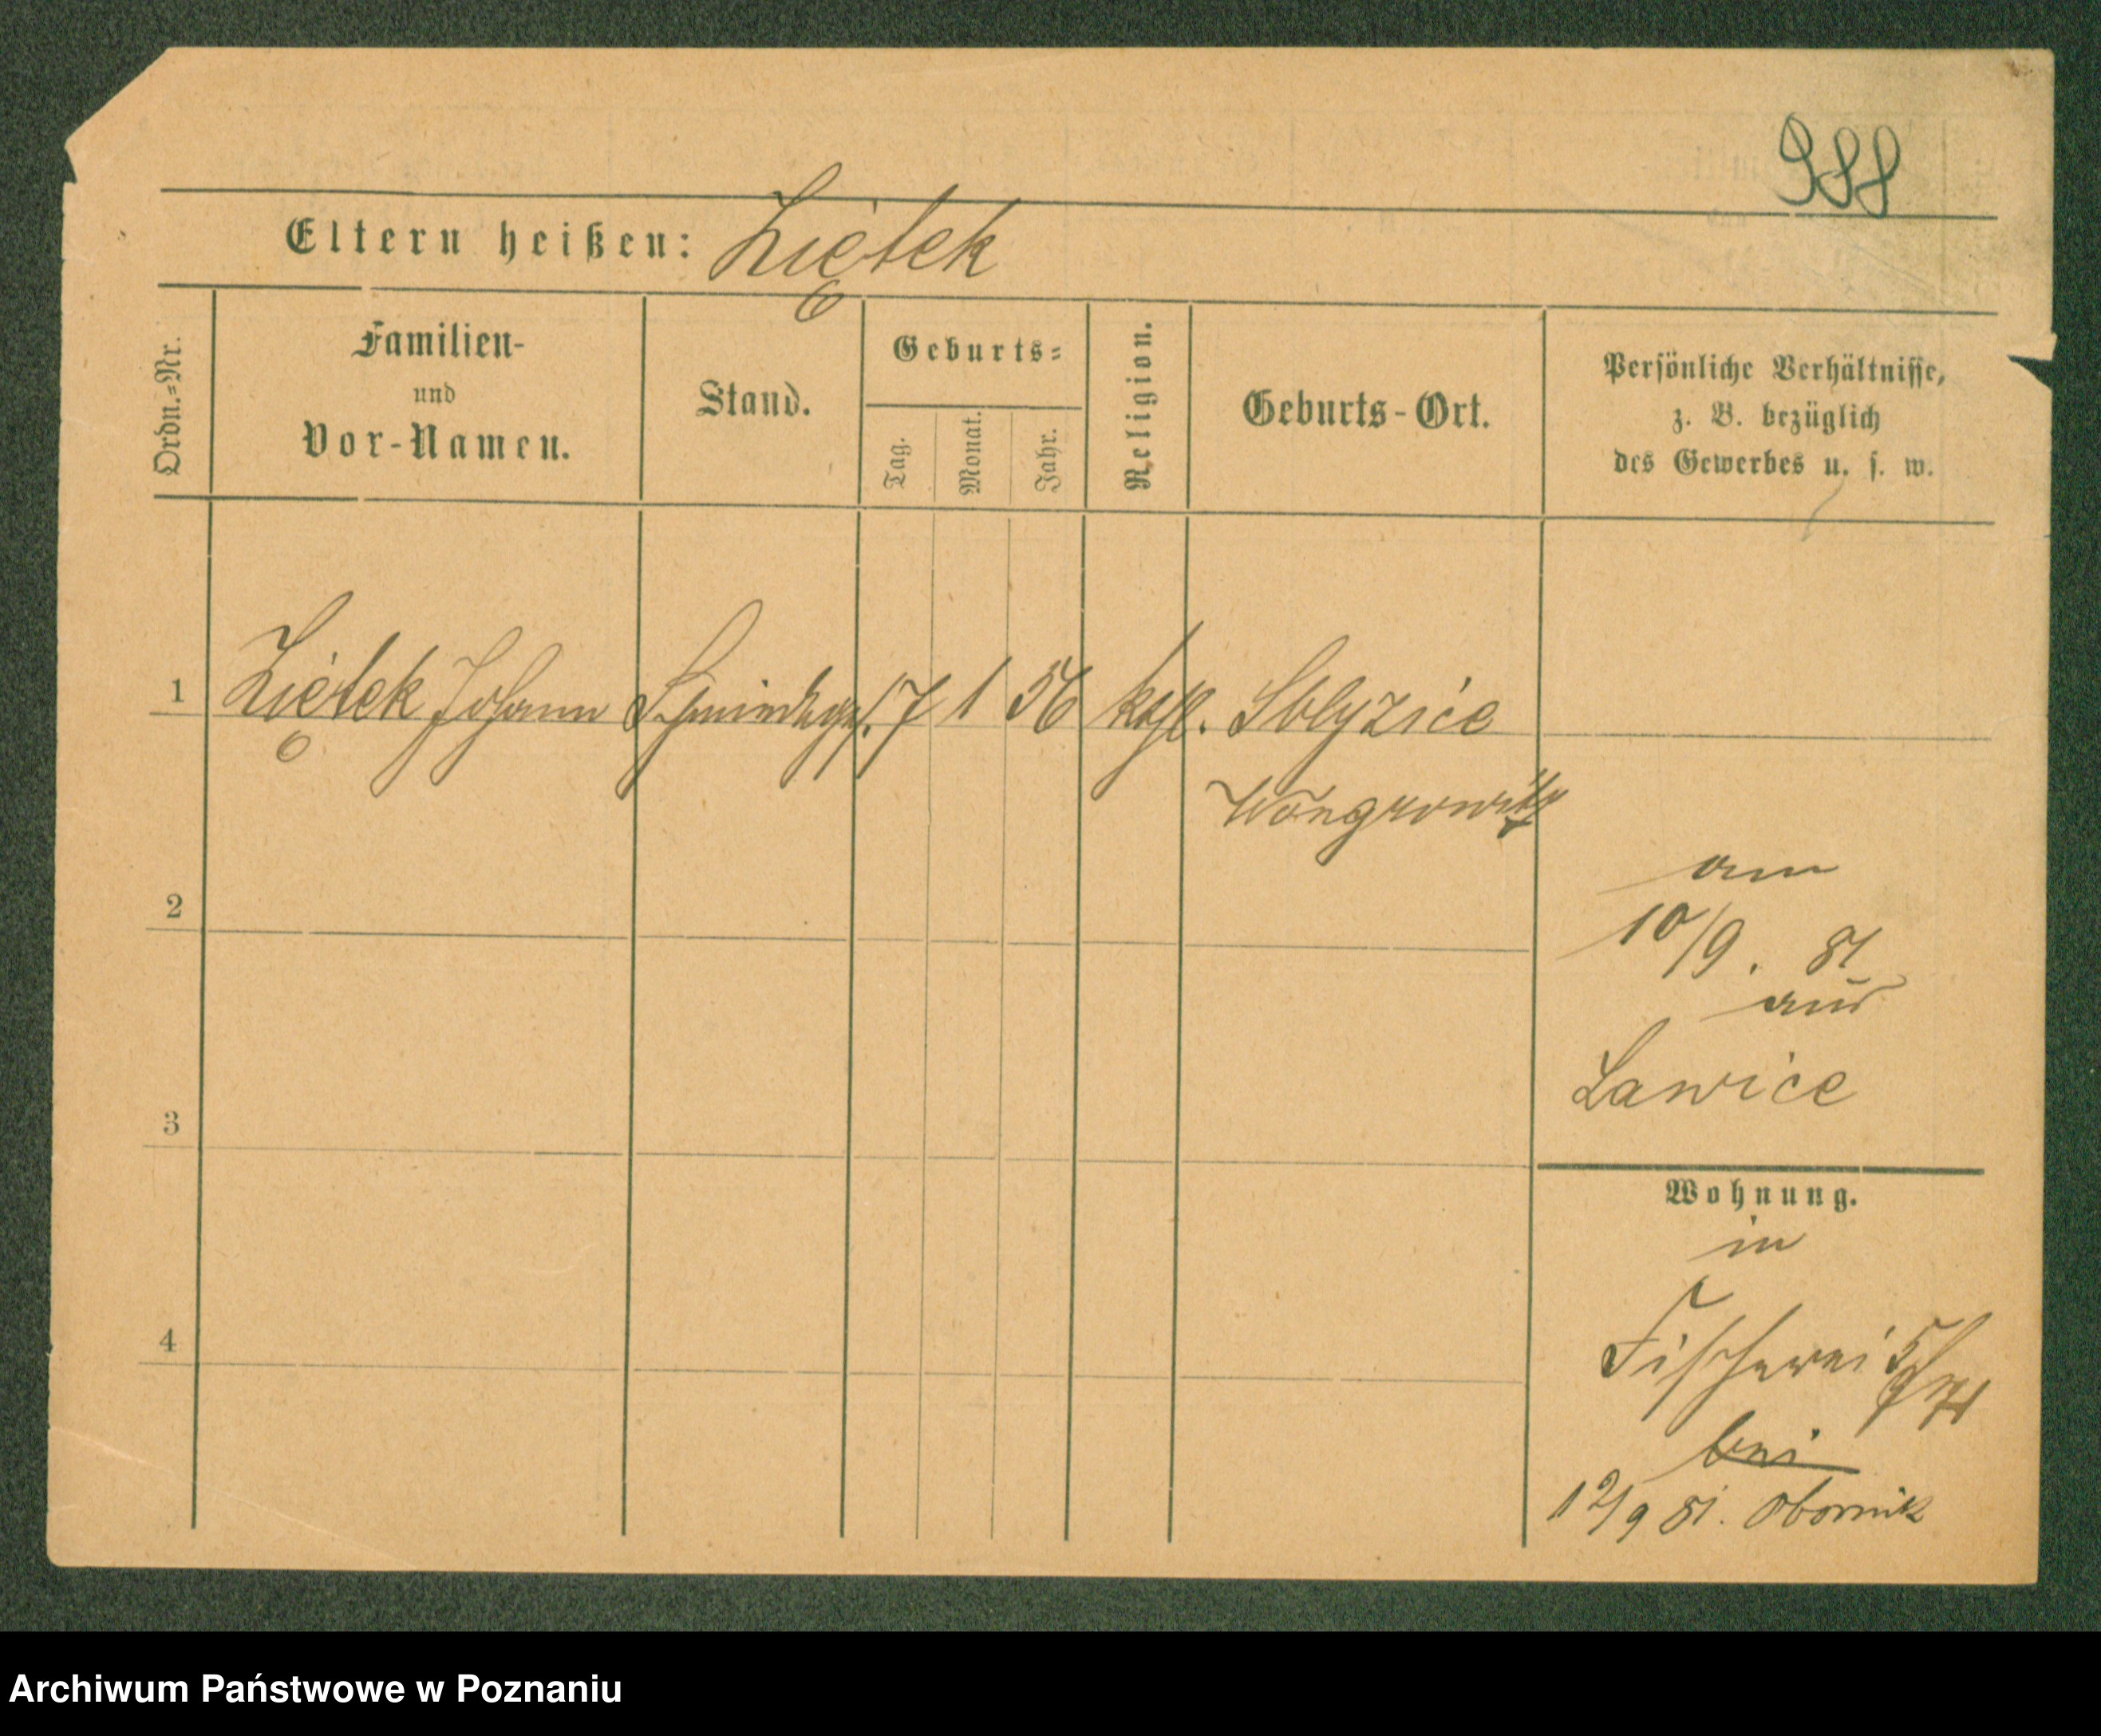 988
Eltern heißen: Ziętek
Ordn.=Nr.
Familien-
und
Vor-Namen.
Stand.
Geburts=
Tag.
Monat.
Jahr.
Religion.
Geburts-Ort.
Persönliche Verhältnisse,
z. B. bezüglich
des Gewerbes u. s. w.
1 Ziętek Johann Schmiedeges. 17 1 56 kath.
Wongrowitz
2
am
10/9. 81
aus
Lawice
3
Wohnung.
in
4
Fischerei 5
bei
12/9 81. Obornik
Archiwum Państwowe w Poznaniu